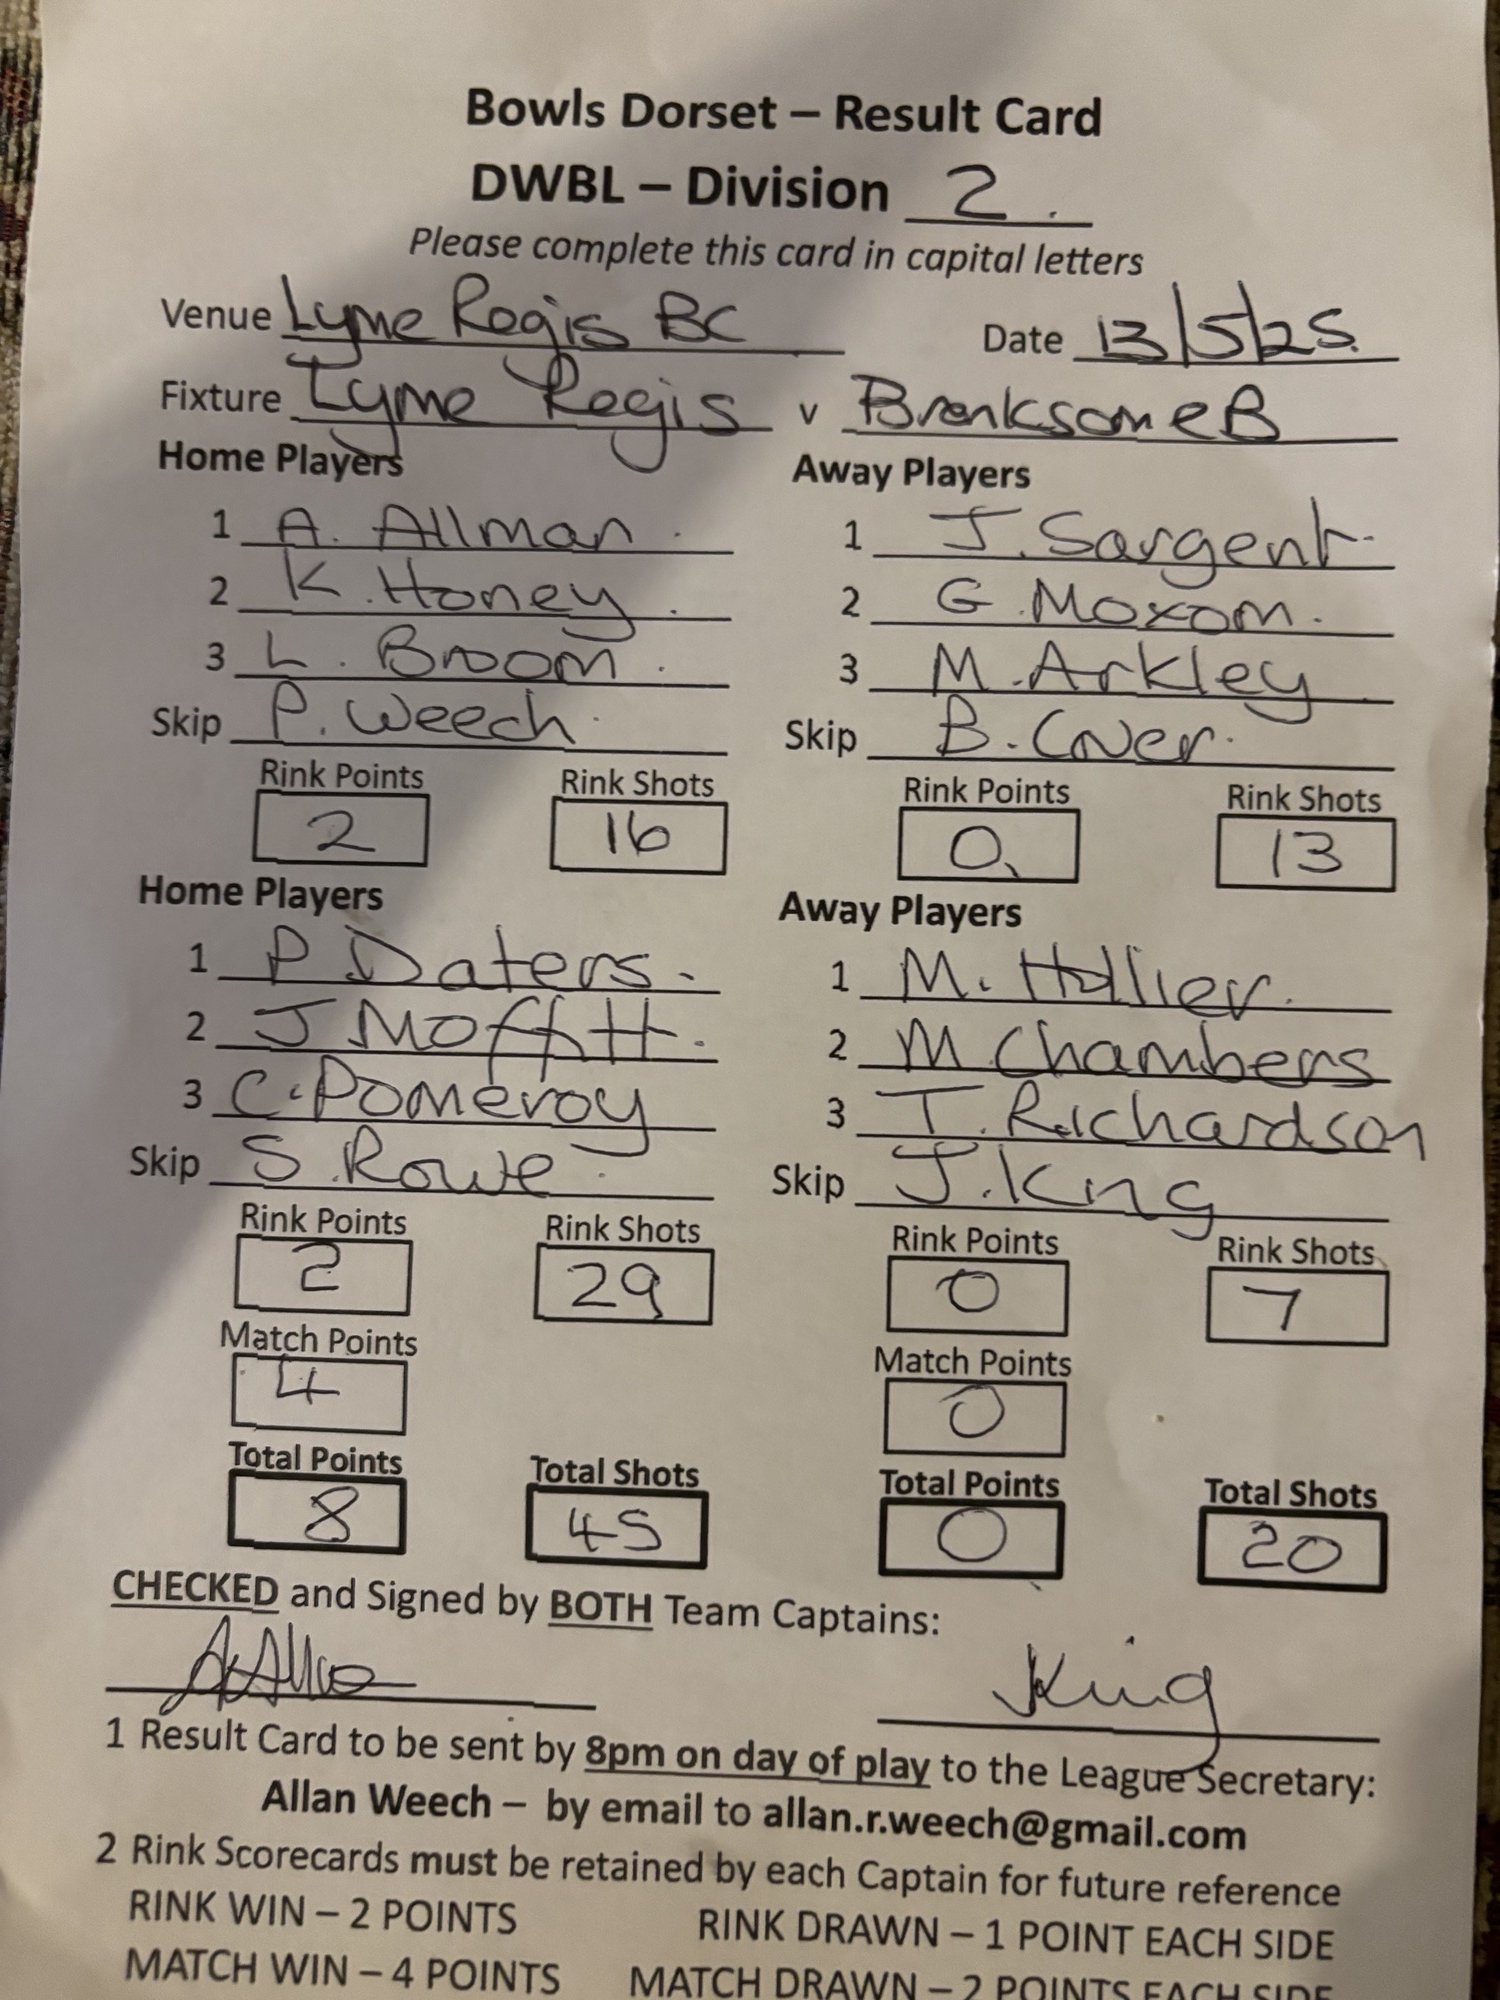 Bowls Dorset – Result Card
DWBL – Division 2.
Please complete this card in capital letters
Venue Lyme Regis BC Date 13/5/25.
Fixture Lyme Regis v Branksome B
Home Players Away Players
1 A. Allman. 1 J. Sargent.
2 K. Honey. 2 G. Moxom.
3 L. Broom. 3 M. Arkley
Skip P. Weech. Skip B. Cover.
Rink Points Rink Shots Rink Points Rink Shots
2 16 0 13
Home Players Away Players
1 P Daters. 1 M. Hollier.
2 J Moffitt. 2 M Chambers
3 C. Pomeroy 3 T. Richardson
Skip S. Rowe. Skip J. King
Rink Points Rink Shots Rink Points Rink Shots
2 29 0 7
Match Points Match Points
4 0
Total Points Total Shots Total Points Total Shots
8 45 0 20
CHECKED and Signed by BOTH Team Captains:
JKing
1 Result Card to be sent by 8pm on day of play to the League Secretary:
Allan Weech – by email to allan.r.weech@gmail.com
2 Rink Scorecards must be retained by each Captain for future reference
RINK WIN – 2 POINTS RINK DRAWN – 1 POINT EACH SIDE
MATCH WIN – 4 POINTS MATCH DRAWN – 2 POINTS EACH SIDE